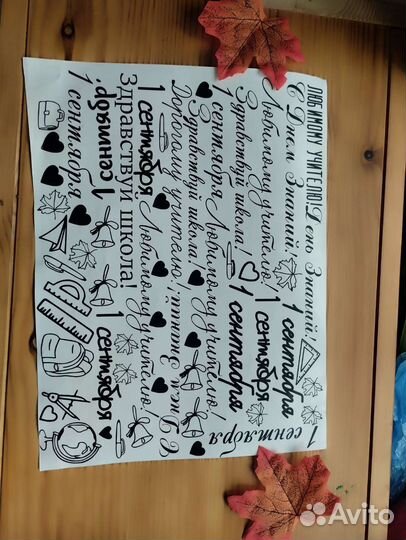 ЛЮБИМОМУ УЧИТЕЛЮ! День Знаний!
С Днем Знаний! 1 сентября
Любимому учителю! 1 сентября
Здравствуй школа! 1 сентября
1 сентября Любимому учителю!
Здравствуй школа!
Дорогому учителю! С Днем Знаний!
1 сентября Любимому учителю!
Здравствуй школа!
1 сентября
1 сентября
1 сентября
1 сентября
Avito